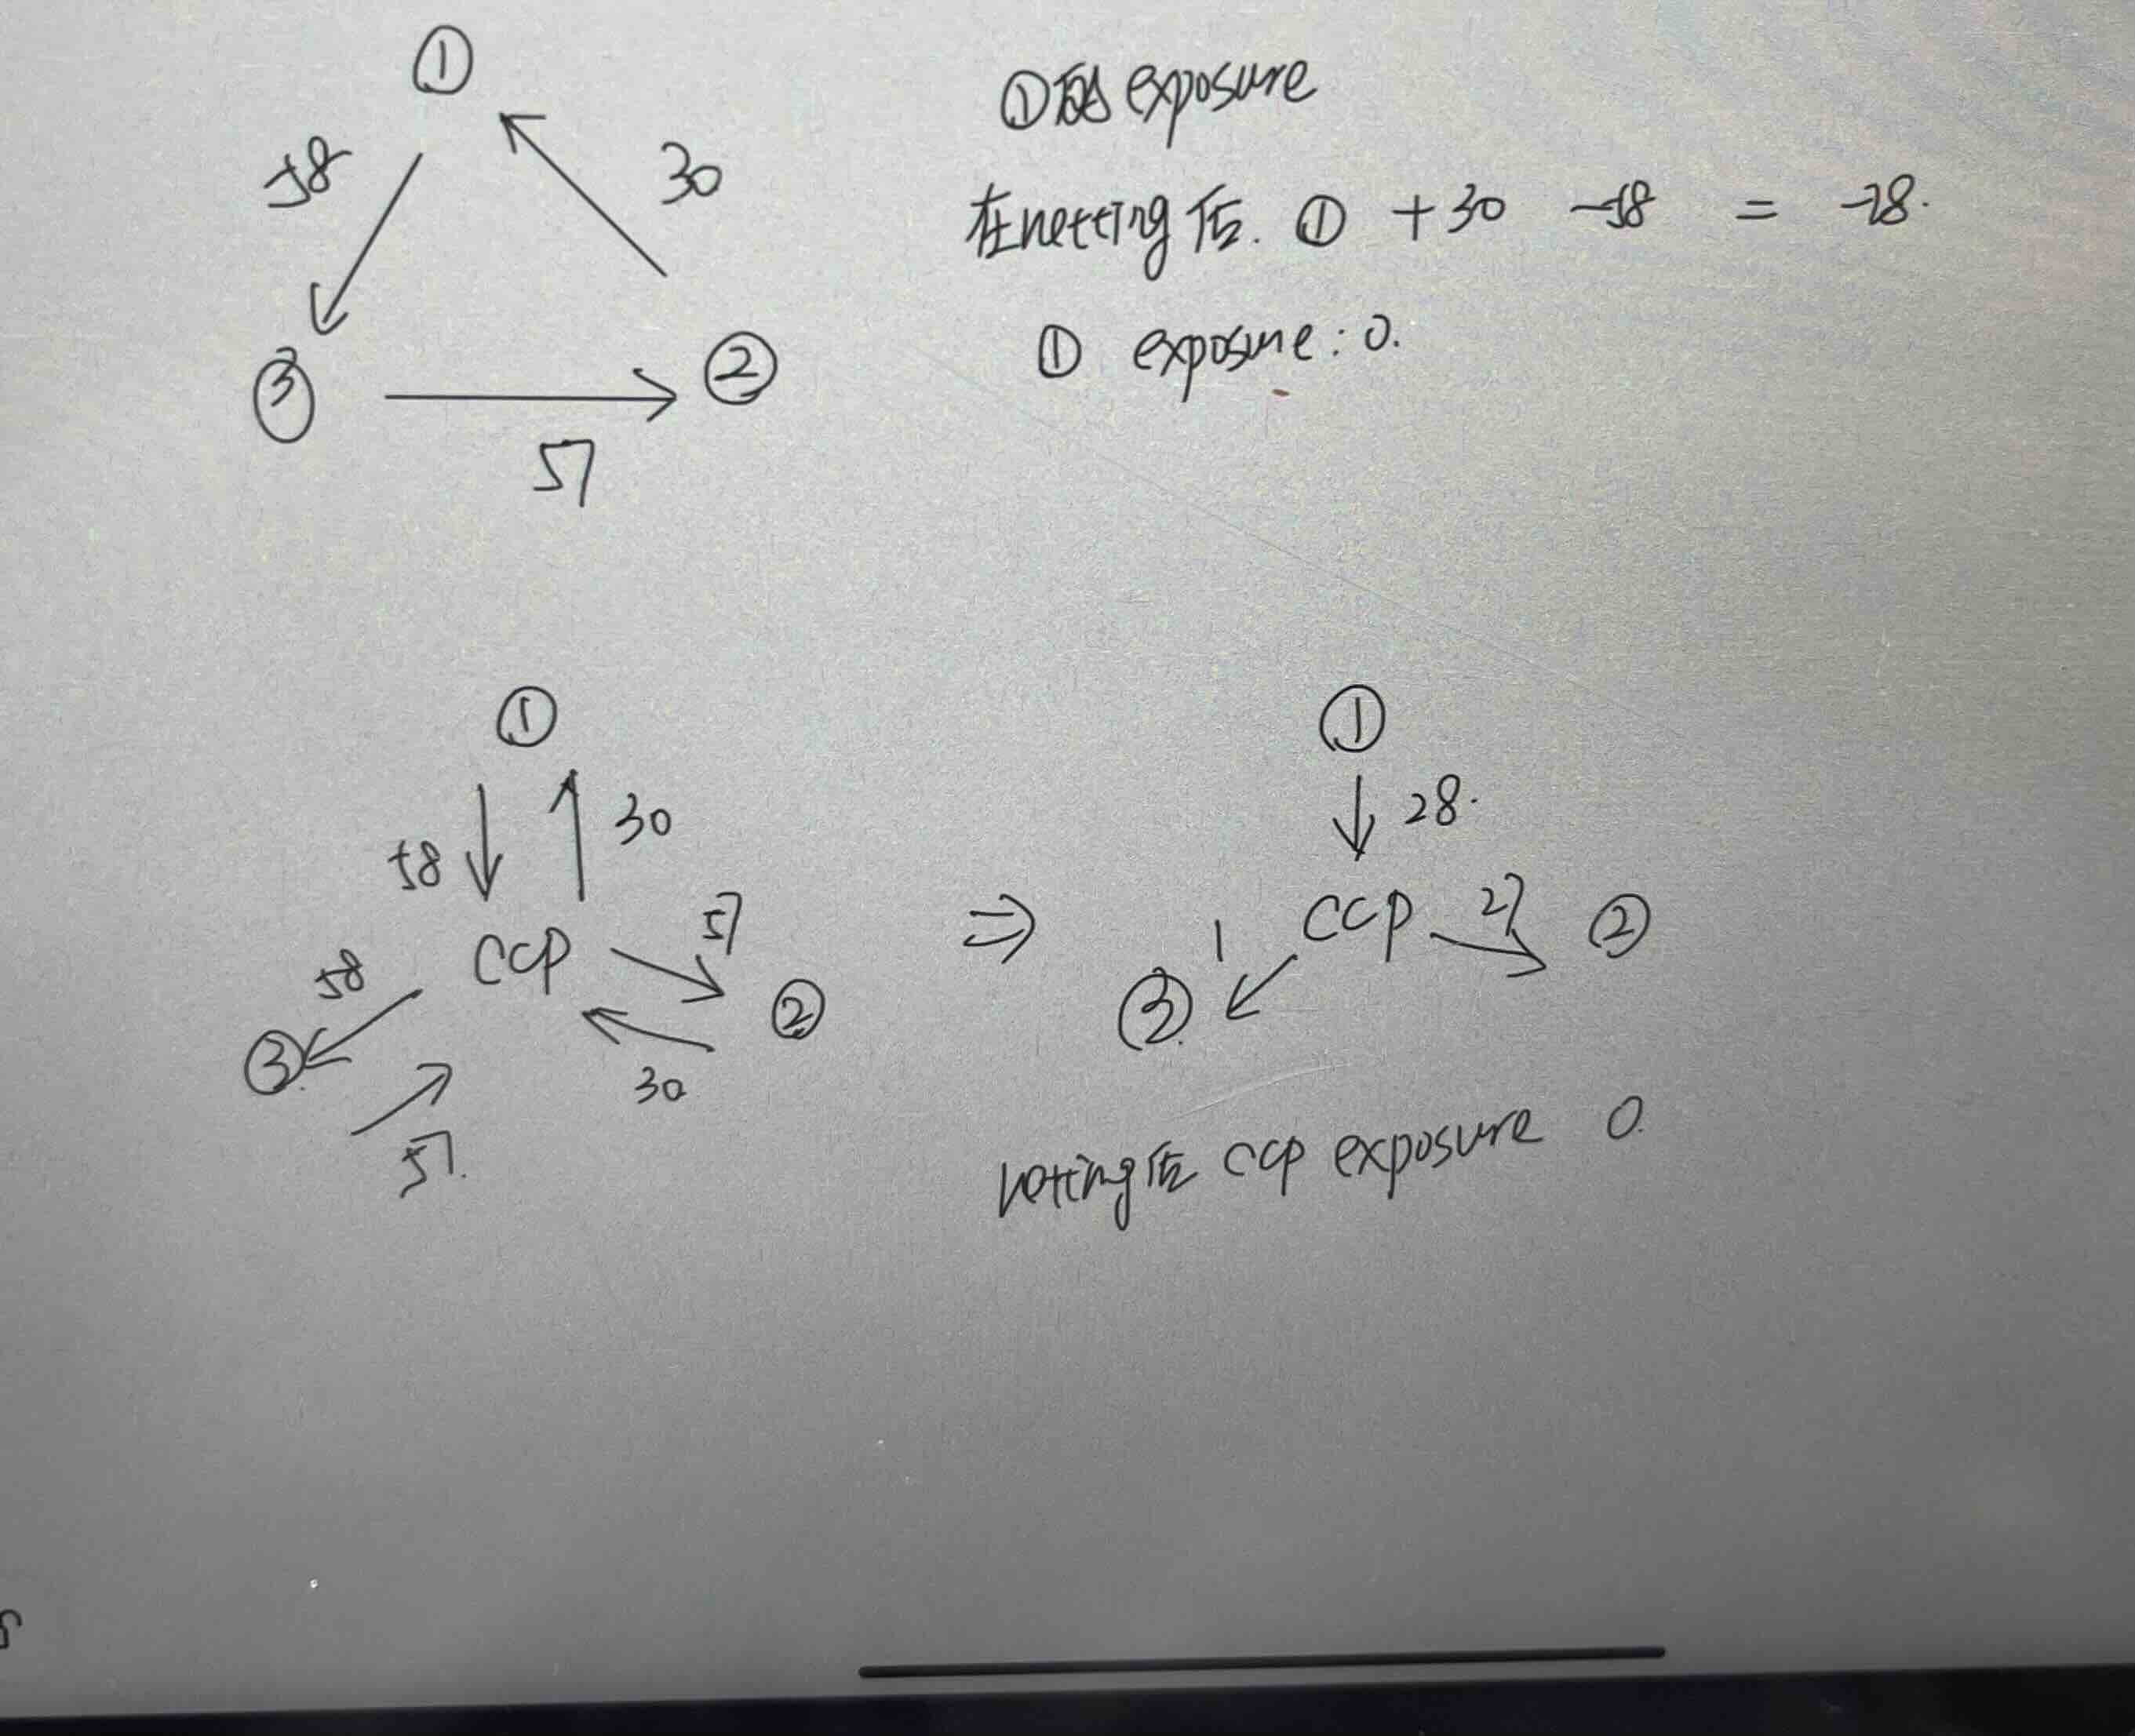 ①
58
30
③
②
57
①的 exposure
在netting后. ① +30 -58 = -28.
① exposure: 0.
①
58
30
CCP
57
58
②
③
30
57.
⇒
①
28.
CCP
27
②
1
③
netting后 CCP exposure 0.